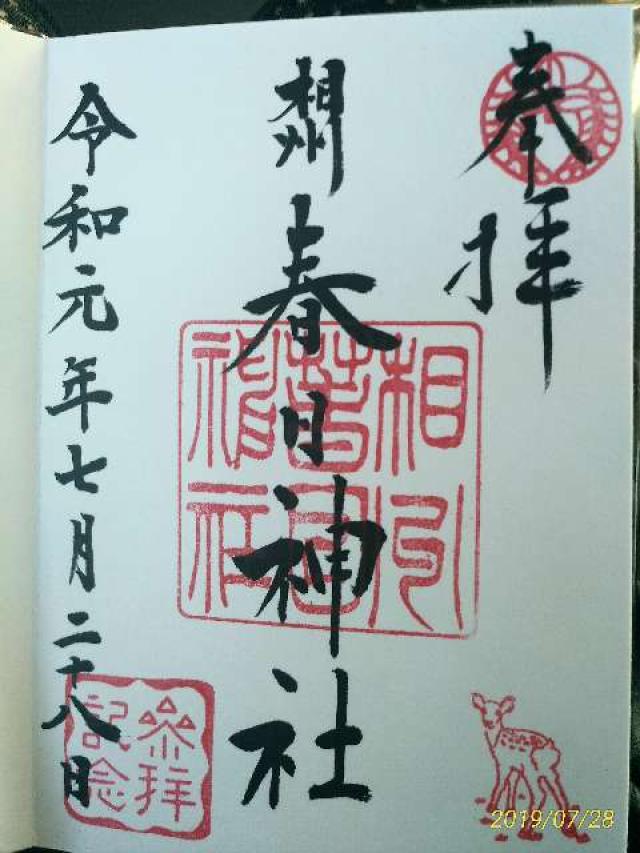 奉拝
相州
春日神社
令和元年七月二十八日
相州春日神社
参拝記念
2019/07/28